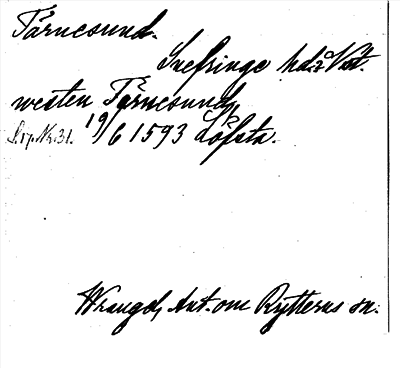 Tärnesund.
Snefringe hd.Väst.
westen Tärnesund
19/6 1593 Löfsta.
Wrangel, Ant. om Rytterns sn.